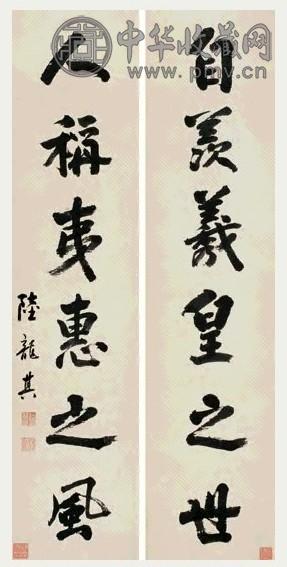 中华收藏网
www.pmv.cn
自羨羲皇之世
人稱夷惠之風
陸龍其